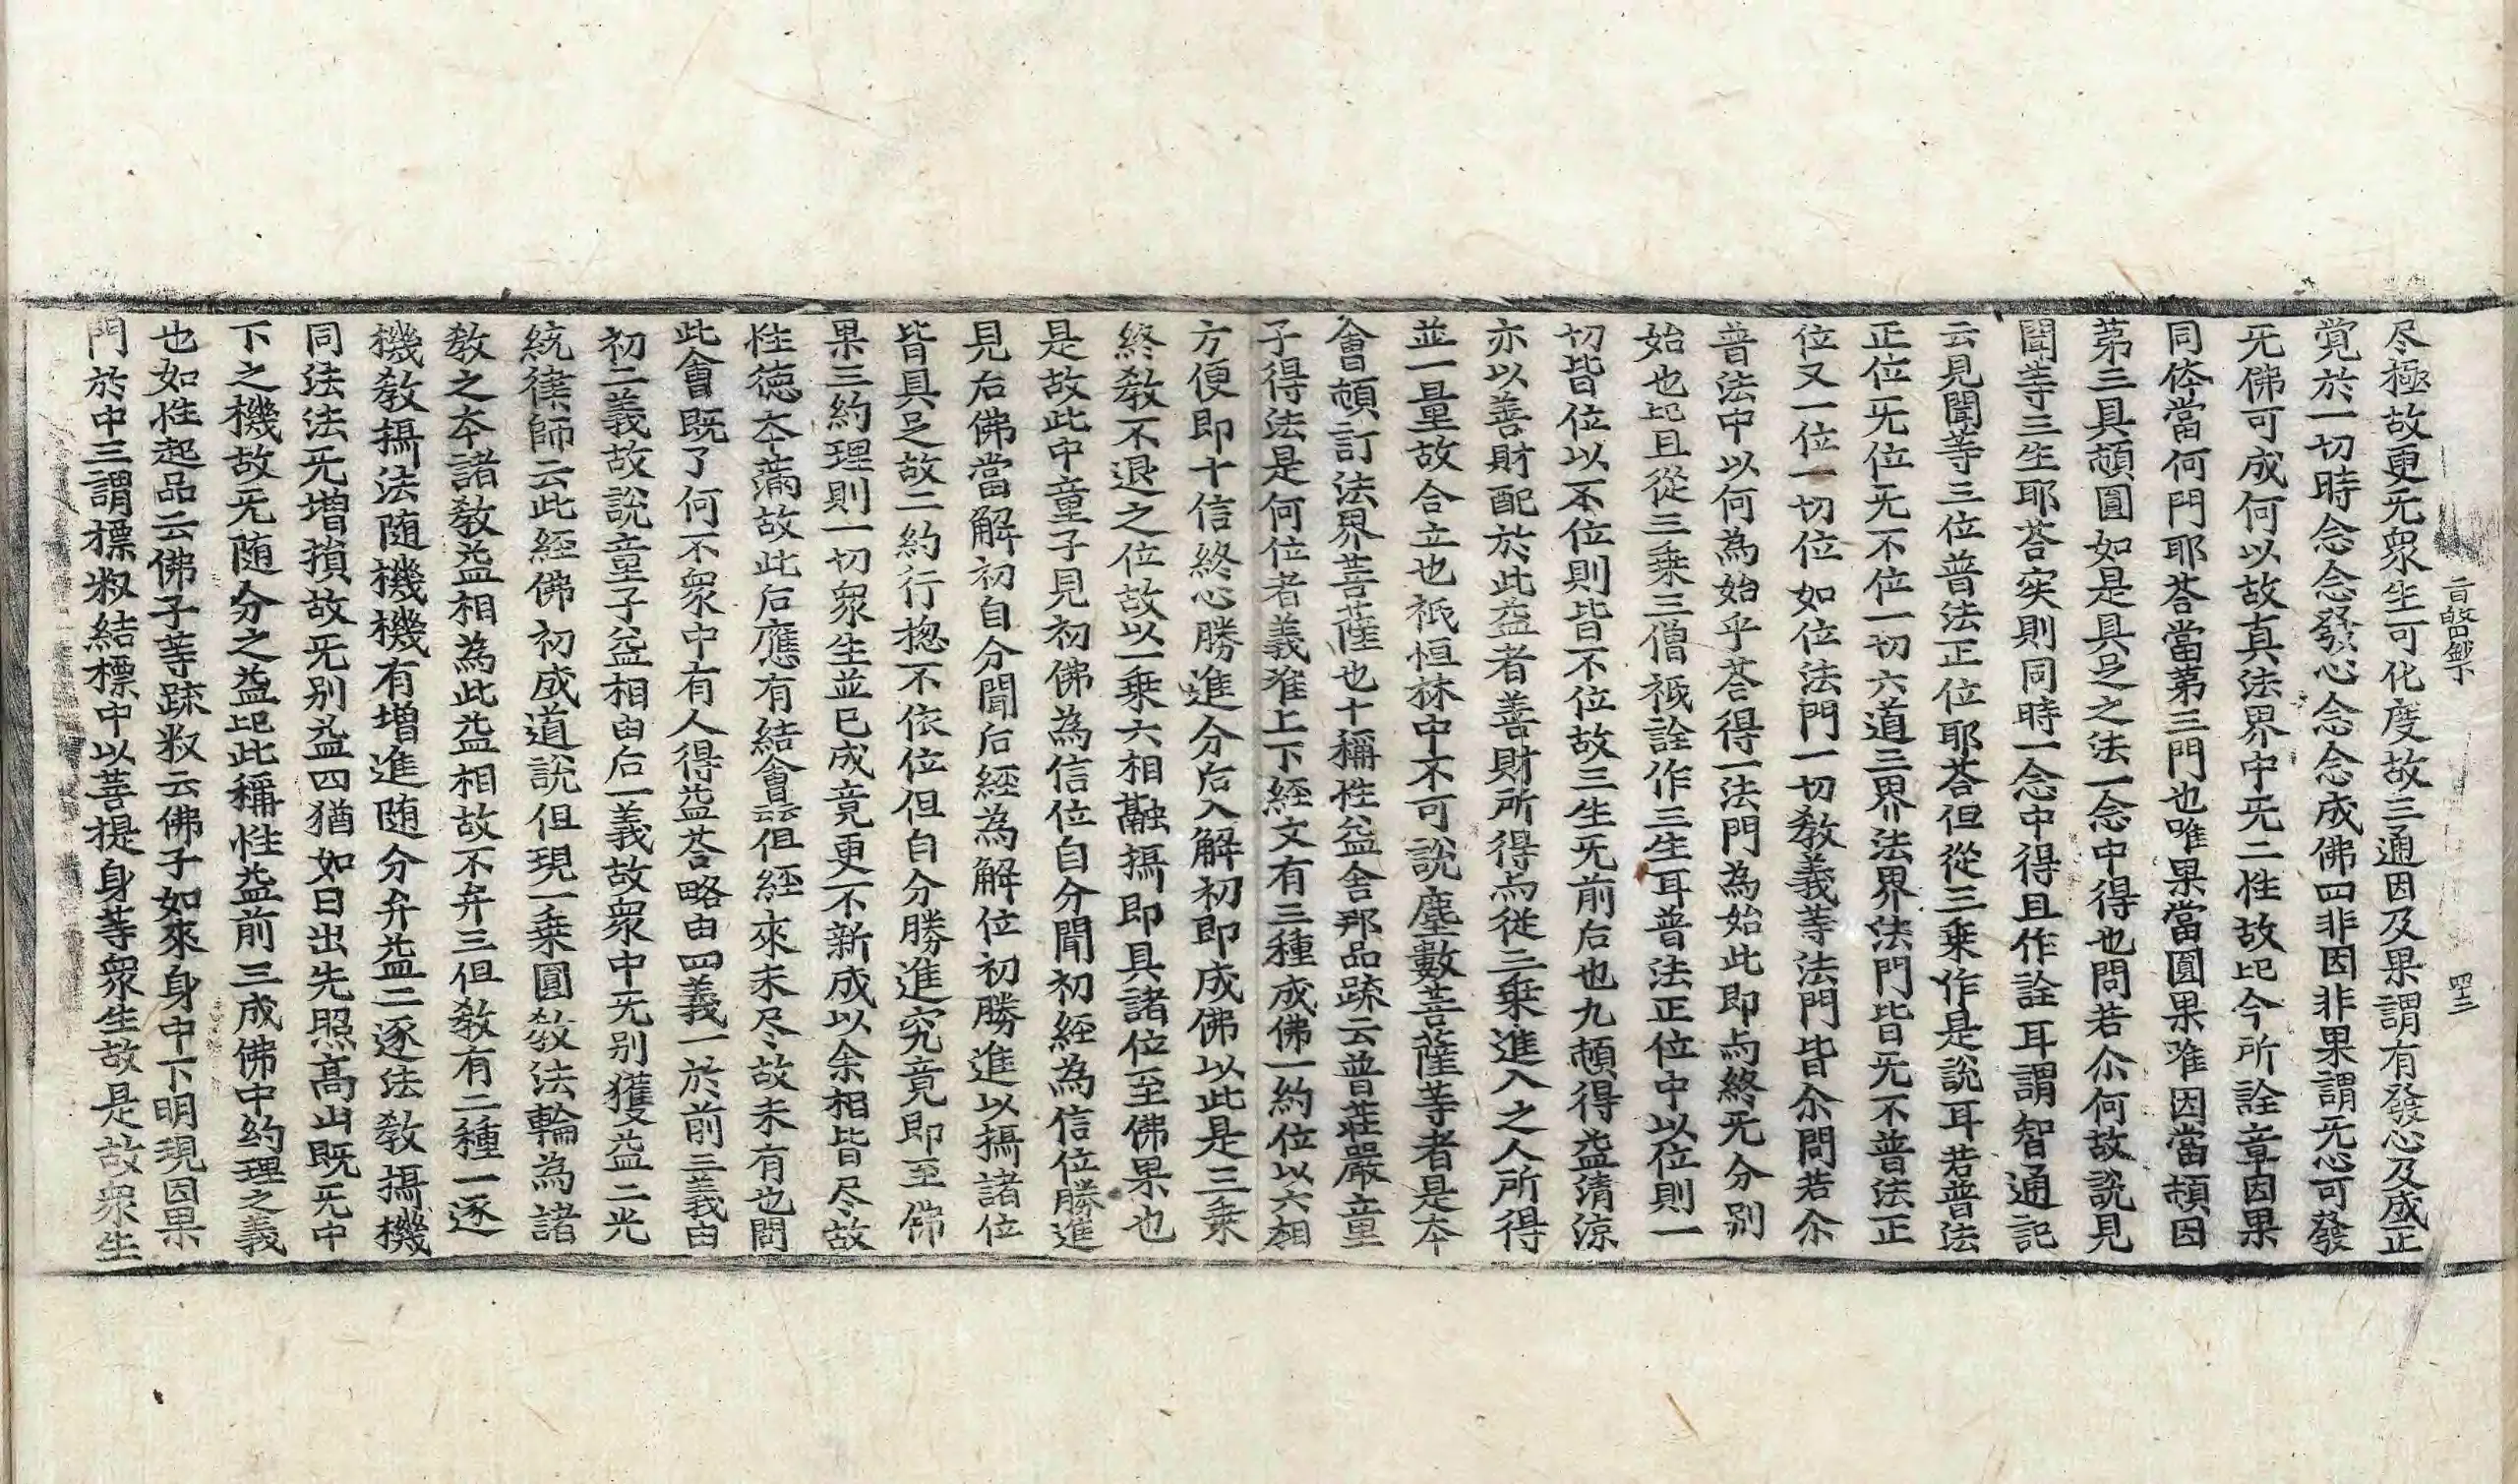 尽極故更旡衆生可化度故三通因及果謂有發心及成正
覚於一切時念念發心念念成佛四非因非果謂旡心可發
旡佛可成何以故真法界中旡二性故記今所詮章因果
同体當何門耶荅當第三門也唯果當圓果唯因當頓因
第三具頓圓如是具足之法一念中得也問若尒何故說見
聞等三生耶荅実則同時一念中得且作詮耳謂智通記
云見聞等三位普法正位耶荅但從三乗作是說耳若普法
正位旡位旡不位一切六道三界法界法門皆旡不普法正
位又一位一切位如位法門一切教義等法門皆尒問若尒
普法中以何為始乎荅得一法門為始此即与終旡分別
始也記且從三乗三僧祇詮作三生耳普法正位中以位則一
切皆位以不位則皆不位故三生旡前后也九頓得益清涼
亦以善財配於此益者善財所得与從三乗進入之人所得
並一量故合立也祇恒林中不可說塵數菩薩等者是夲
會頓訂法界菩薩也十稱性益舍那品䟽云普莊嚴童
子得法是何位者義准上下經文有三種成佛一約位以六相
方便即十信終心勝進分后入解初即成佛以此是三乗
終教不退之位故以一乗六相融攝即具諸位至佛果也
是故此中童子見初佛為信位自分聞初經為信位勝進
見后佛當解初自分聞后經為解位初勝進以攝諸位
皆具足故二約行揔不依位但自分勝進究竟即至佛
果三約理則一切衆生並已成竟更不新成以余相皆尽故
性徳夲滿故此后應有結會云但經來未尽故未有也問
此會既了何不衆中有人得益荅略由四義一於前三義由
初二義故說童子益相由后一義故衆中旡別獲益二光
統律師云此經佛初成道說但現一乗圓教法輪為諸
教之夲諸教益相為此益相故不弁三但教有二種一逐
機教攝法随機機有增進随分弁益二逐法教攝機
同法法旡增損故旡別益四猶如日出先照髙山既旡中
下之機故旡随分之益記此稱性益前三成佛中約理之義
也如性起品云佛子等䟽釈云佛子如來身中下明現因果
門於中三謂標釈結標中以菩提身等衆生故是故衆生